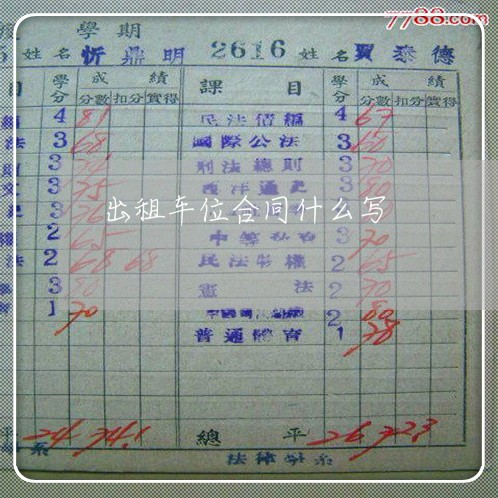 7788.com
學期
姓名 忻鼎明 2616 姓名 賈泰德
目 學分 成績 課目 學分 成績
分數 扣分 實得 分數 扣分 實得
4 81 民法債編 4 67
法 3 68 國際公法 3 60
3 刑法總則 3 70
3 75 西洋通史 3 80
3 76 3
2 65 中等 3 70
法 2 68 68 民法物權 2 65
3 80 憲法 2 70
1 70 2 80
普通體育 1 78
出租车位合同什么写
平 24 74.1 總平 26 72.3
系 法律學系